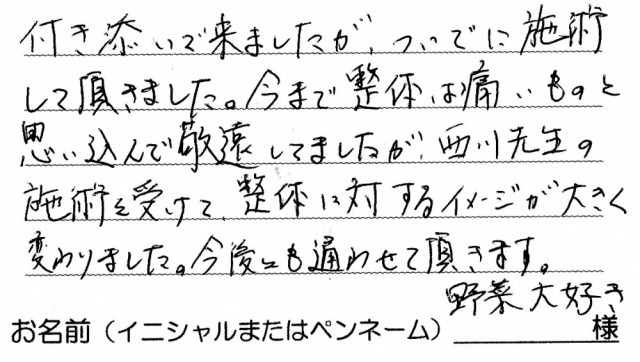 付き添いで来ましたが、ついでに施術
して頂きました。今まで整体は痛いものと
思い込んで敬遠してましたが、西川先生の
施術を受けて、整体に対するイメージが大きく
変わりました。今後も通わせて頂きます。
野菜大好き
お名前（イニシャルまたはペンネーム）　　　　　様